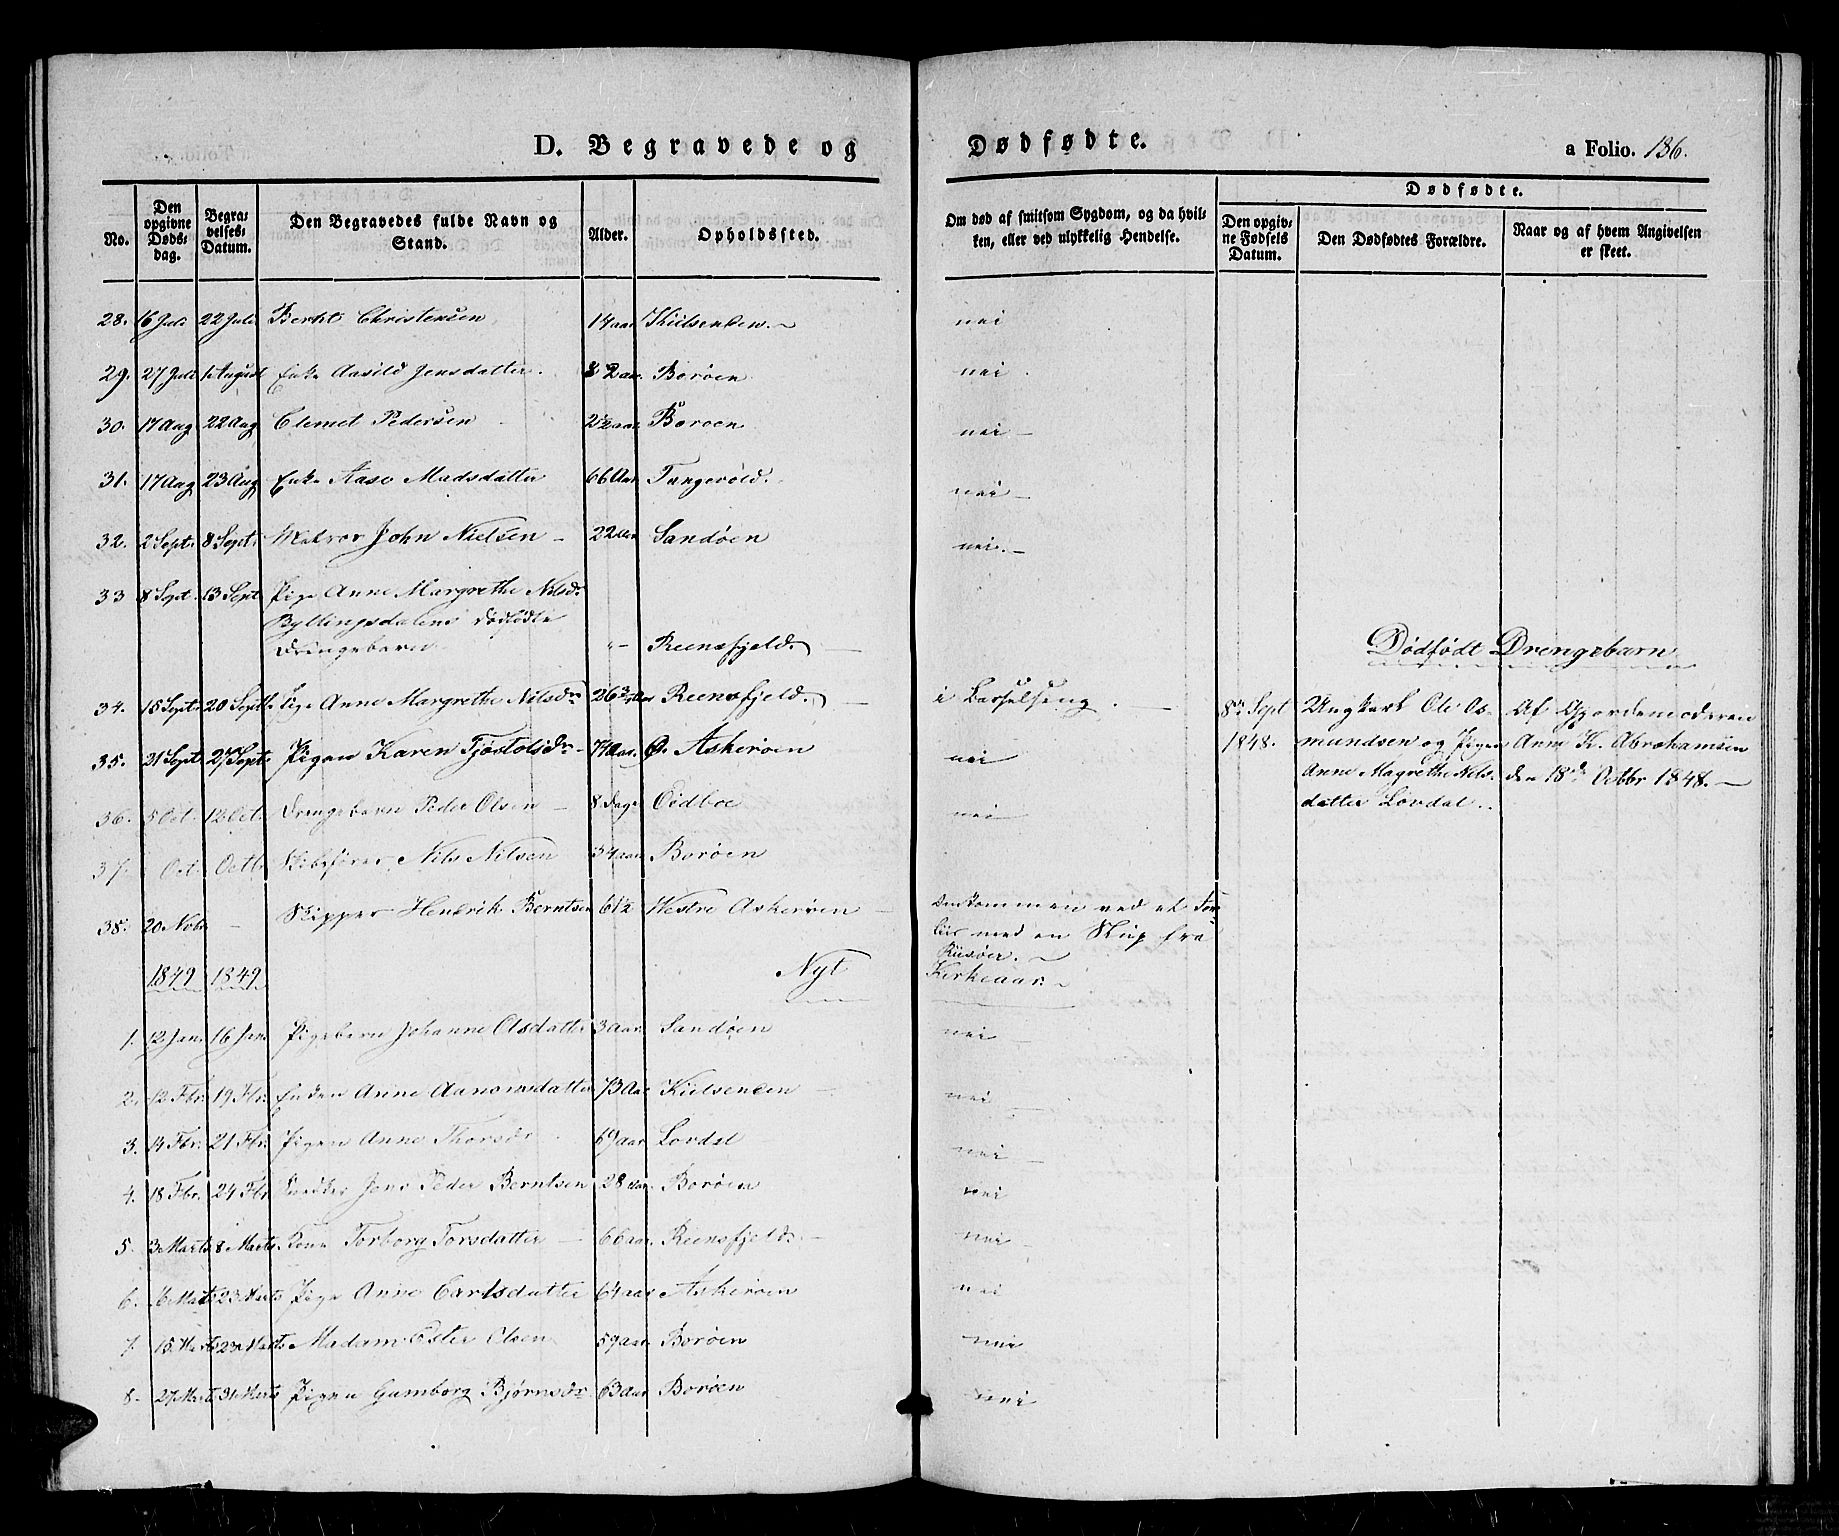 D. Begravede og Dødfødte. a Folio. 136.
No. | Den opgivne Dødsdag. | Begravelses-Datum. | Den Begravedes fulde Navn og Stand. | Alder. | Opholdssted. | Om død af smitsom Sygdom, og da hvilken, eller ved ulykkelig Hendelse. | Dødfødte. Den opgivne Fødsels Datum. | Den Dødfødtes Forældre. | Naar og af hvem Angivelsen er skeet.
28. 16 Juli 22 Juli Berht Christensen 14 aar Kiilsenden. nei
29. 27 Juli 1 August Enke Aasild Jensdatter. 82 aar Borøen nei.
30. 17 Aug 22 Aug Clemet Pedersen 2½ aar Borøen nei
31. 17 Aug 23 Aug Enke Aase Madsdatter 66 Aar Tangevold. nei
32. 2 Sept. 8 Sept. Matros John Nielsen 22 Aar Sandøen nei.
33 8 Sept. 13 Sept Pige Anne Margrethe Nilsdr
Byllingsdalens dødfødte
Drengebarn. "- Reensfjeld.
Dødfødt Drengebarn
34. 15 Sept. 20 Septb. Pige Anne Margrethe Nilsdr 26 Aar Reensfjeld. i Barselseng.
8de Sept 1848. Ungkarl Ole Osmundsen og Pigen Anne Magrethe Nilsdatter Lovdal.. Af Gjordemoderen Anne K. Abrahamsen den 18de Octbr 1848.
35. 21 Sept. 27 Sept. Pigen Karen Tjøstolsdr 74 Aar. Ø. Askerøen nei
36. 5 Oct. 12 Oct. Drengebarn Peder Olsen 8 Dage Oidboe nei
37. Oct. Octb. Skibsfører Nils Nilsen 34 aar Borøen
38. 20 Nobr - Skipper Hendrik Berntsen 61½ Westre Askerøen Omkommen ved et Forliis med en Slup fra Riisøer.
1849 1849 Nyt Kirkeaar.
1. 12 Jan. 16 Jan Pigebarn Johanne Olsdatter 3 Aar Sandøen nei
2. 12 Fbr. 19 Fbr. Enken Anne Aanonsdatter 73 Aar Kiilsenden nei
3. 14 Fbr. 21 Fbr. Pigen Anne Thorsdr 69 aar Lovdal nei
4. 18 Fbr. 24 Fbr Snedker Jens Peder Berntsen 28 aar. Borøen nei
5. 3 Marts 8 Marts. Kone Torborg Torsdatter 66 aar. Reensfjeld. nei
6. 6 Marts 23 Marts Pige Anne Carlsdatter 64 aar Askerøen nei
7. 15 Marts 23 Marts Madam Ester Olsen 59 aar Borøen nei
8. 27 Marts 31 Marts Pigen Gumborg Bjørnsdr 63 aar Borøen nei